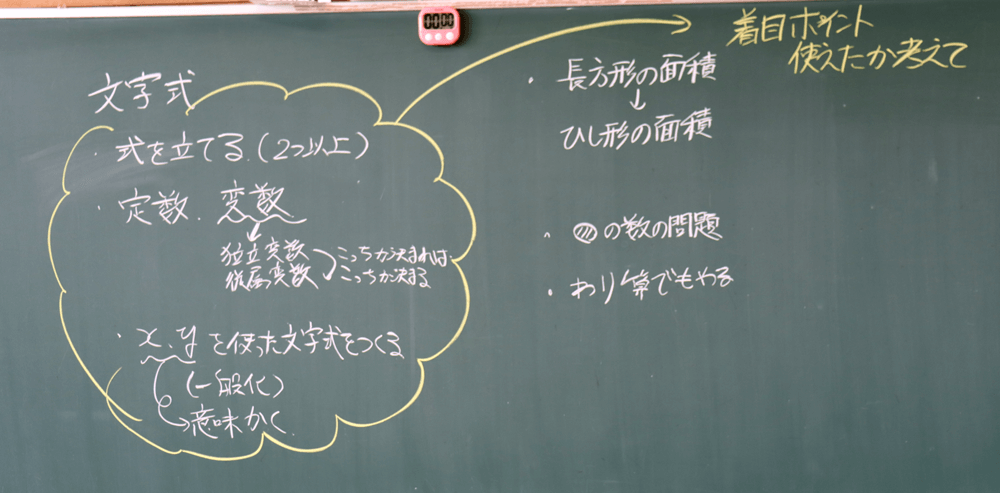 文字式
・式を立てる.(2つ以上)
・定数.変数
独立変数
従属変数
こっちが決まれば
こっちが決まる
・x.yを使った文字式をつくる
(一般化)
意味かく
着目ポイント
使えたか考えて
・長方形の面積
↓
ひし形の面積
・の数の問題
・わり算でもやる
00:00